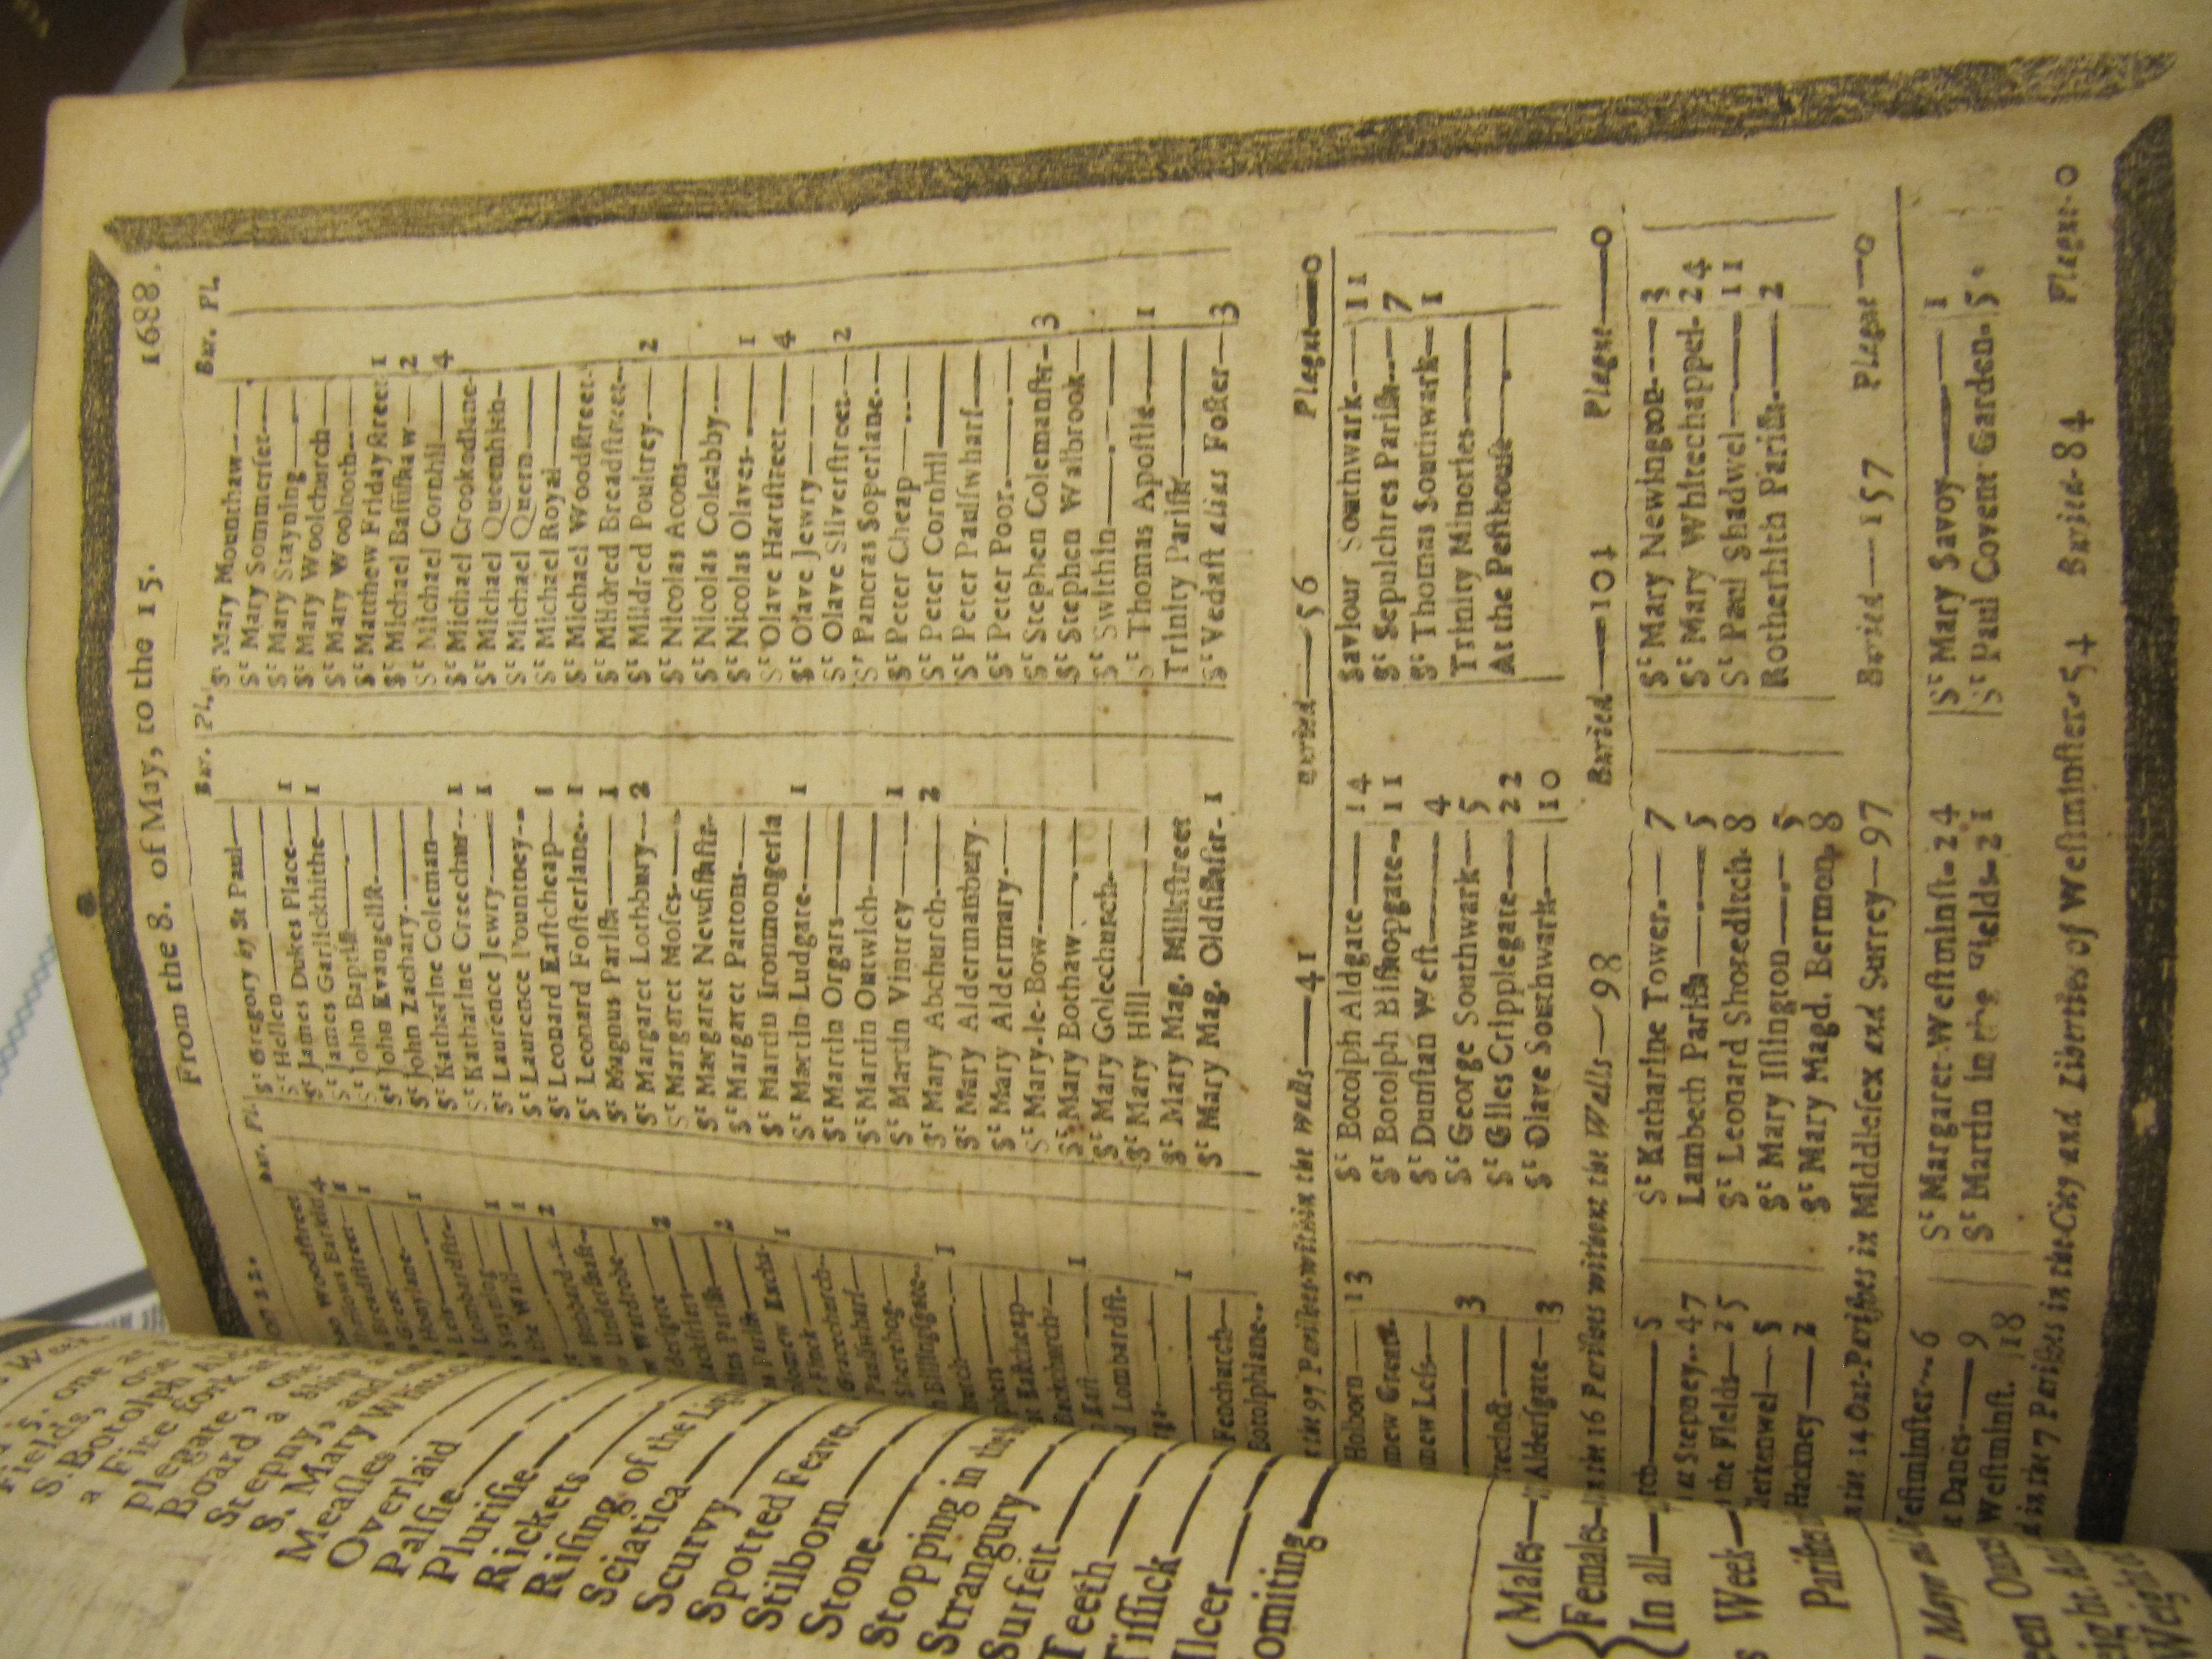 From the 8. of May, to the 15. 1688.
Bur. Pl.
Woodstreet
Barkin 4
Breadstreet 1
Honylane 1
Lombardstr
Stayning 1
the Wall 1
Hubbard 2
Undershaft
Wardrobe
2
Blackfriers
2
Excha. 1
Finck
Gracechurch
Paulswharf
Sherehog
Billingsgate
1
Eastcheap
Backchurch
East 1
Lombardst
1
Fenchurch
Botolphlane
Bur. Pl.
St Gregory by St Paul
St Hellen
St James Dukes Place 1
St James Garlickhithe 1
St John Baptist
St John Evangelist
St John Zachary
St Katharine Coleman
St Katharine Creechur 1
St Laurence Jewry 1
St Laurence Pountney
St Leonard Eastcheap 1
St Leonard Fosterlane 1
St Magnus Parish 1
St Margaret Lothbury 2
St Margaret Moses
St Margaret Newfishstr
St Margaret Pattons
St Martin Ironmongerla
St Martin Ludgate 1
St Martin Orgars
St Martin Outwich
St Martin Vintrey 1
St Mary Abchurch 2
St Mary Aldermanbury
St Mary Aldermary
St Mary-le-Bow
St Mary Bothaw
St Mary Colechurch
St Mary Hill
St Mary Mag. Milkstreet
St Mary Mag. Oldfishstr 1
Bur. Pl.
St Mary Mounthaw
St Mary Sommerset
St Mary Stayning
St Mary Woolchurch
St Mary Woolnoth
St Matthew Fridaystreet 1
St Michael Bassishaw 2
St Michael Cornhil 4
St Michael Crookedlane
St Michael Queenhith
St Michael Quern
St Michael Royal
St Michael Woodstreet
St Mildred Breadstreet
St Mildred Poultrey 2
St Nicolas Acons
St Nicolas Coleabby
St Nicolas Olaves 1
St Olave Hartstreet 4
St Olave Jewry
St Olave Silverstreet 2
St Pancras Soperlane
St Peter Cheap
St Peter Cornhil
St Peter Paulswharf
St Peter Poor
St Stephen Colemanstr 3
St Stephen Walbrook
St Swithin
St Thomas Apostle 1
Trinity Parish
St Vedast alias Foster 3
in the 97 Parishes within the Walls 41 Buried 56 Plague 0
Holborn 13
Great
Less
3
Precinct
Aldersgate 3
St Botolph Aldgate 14
St Botolph Bishopgate 11
St Dunstan West 4
St George Southwark 5
St Giles Cripplegate 22
St Olave Southwark 10
Saviour Southwark 11
St Sepulchres Parish 7
St Thomas Southwark 1
Trinity Minories
At the Pesthouse
in the 16 Parishes without the Walls 98 Buried 101 Plague 0
5
at Stepney 47
the Fields 25
Clerkenwel 5
Hackney 2
St Katharine Tower 7
Lambeth Parish 5
St Leonard Shoreditch 8
St Mary Islington 5
St Mary Magd. Bermon. 8
St Mary Newington 3
St Mary Whitechappel 24
St Paul Shadwel 11
Rotherhith Parish 2
in the 14 Out-Parishes in Middlesex and Surrey 97 Buried 157 Plague 0
Westminster 6
Danes 9
Westminst. 18
St Margaret Westminst. 24
St Martin in the Fields 21
St Mary Savoy 1
St Paul Covent Garden 5
in the 7 Parishes in the City and Liberties of Westminster 54 Buried 84 Plague 0
Week
Fields,
S. Botolph
a Fire fork
plegate,
Board a Ship
Stepny, and
S. Mary
Measles
Overlaid
Palsie
Plurisie
Rickets
Rising of the Lights
Sciatica
Scurvy
Spotted Feaver
Stilborn
Stone
Stopping in the
Strangury
Surfeit
Teeth
Tissick
Ulcer
Vomiting
Males
Females
In all
Week
Parishes